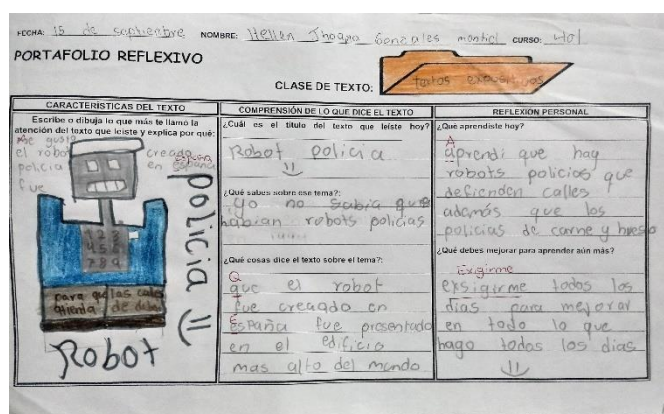 FECHA: 15 de septiembre NOMBRE: Hellen Jhoana Gonzales montiel CURSO: 401
PORTAFOLIO REFLEXIVO
CLASE DE TEXTO: textos expositivos
CARACTERÍSTICAS DEL TEXTO
Escribe o dibuja lo que más te llamó la
atención del texto que leíste y explica por qué:
Me gusto
el robot creado
policia en españa
España
fue
1 2 3
4 5 6
7 8 9
para que las calles
atienda de
policia
Robot
COMPRENSIÓN DE LO QUE DICE EL TEXTO
¿Cuál es el título del texto que leíste hoy?
Robot policia
¿Qué sabes sobre ese tema?:
yo no sabia que
habian robots policias
¿Qué cosas dice el texto sobre el tema?:
Q
que el robot
fue creagdo en
E
españa fue presentado
en el edificio
mas alto del mundo
REFLEXIÓN PERSONAL
¿Qué aprendiste hoy?
A
aprendi que hay
robots policios que
defienden calles
ademós que los
policias de carne y hueso
¿Qué debes mejorar para aprender aún más?
Exigirme
exsigirme todos los
dias para mejorar
en todo lo que
hago todos los dias